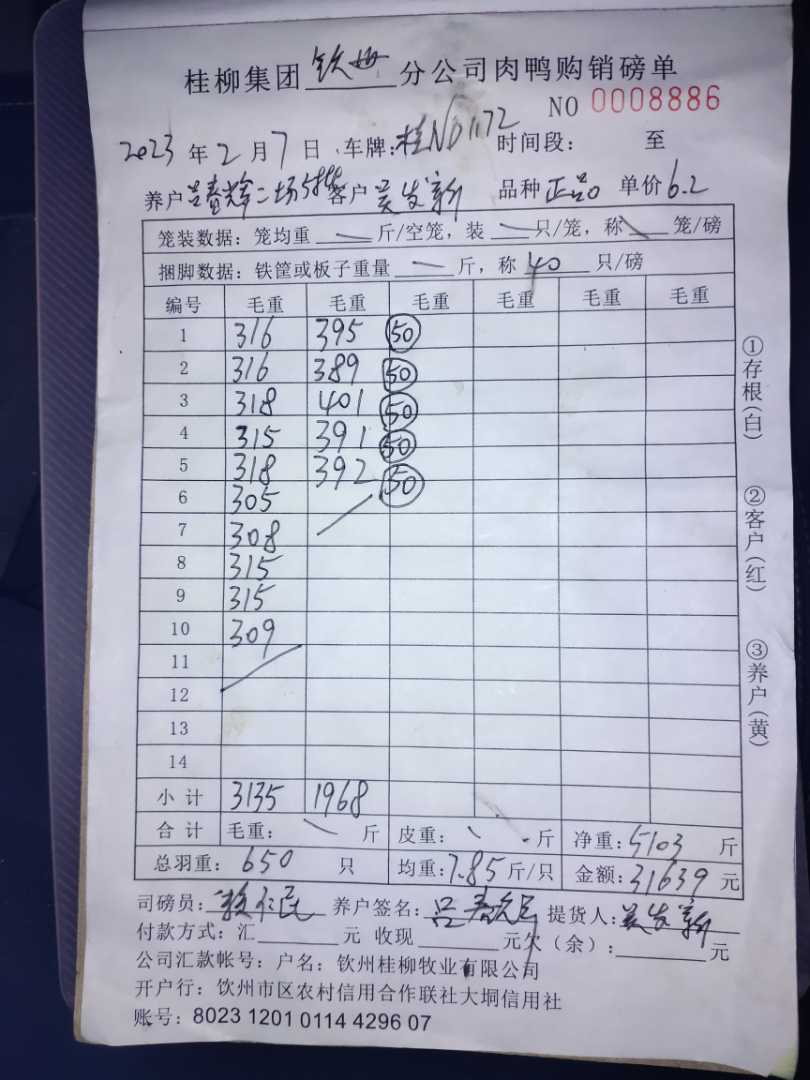 桂柳集团 钦州 分公司肉鸭购销磅单
NO 0008886
2023 年 2 月 7 日 车牌: 桂ND1172 时间段: 至
养户 吕春辉二场 客户 吴发新 品种 正品 单价 6.2
笼装数据: 笼均重 — 斤/空笼, 装 — 只/笼, 称 — 笼/磅
捆脚数据: 铁筐或板子重量 — 斤, 称 40 只/磅
编号 毛重 毛重 毛重 毛重 毛重 毛重
1 316 395 50
2 316 389 50
3 318 401 50
4 315 391 50
5 318 392 50
6 305
7 308
8 315
9 315
10 309
11
12
13
14
小计 3135 1968
合计 毛重: 斤 皮重: 斤 净重: 5103 斤
总羽重: 650 只 均重: 7.85 斤/只 金额: 31639 元
司磅员: 养户签名: 提货人: 吴发新
付款方式: 汇 元 收现 元欠(余): 元
公司汇款帐号: 户名: 钦州桂柳牧业有限公司
开户行: 钦州市区农村信用合作联社大垌信用社
账号: 8023 1201 0114 4296 07
①存根(白)
②客户(红)
③养户(黄)